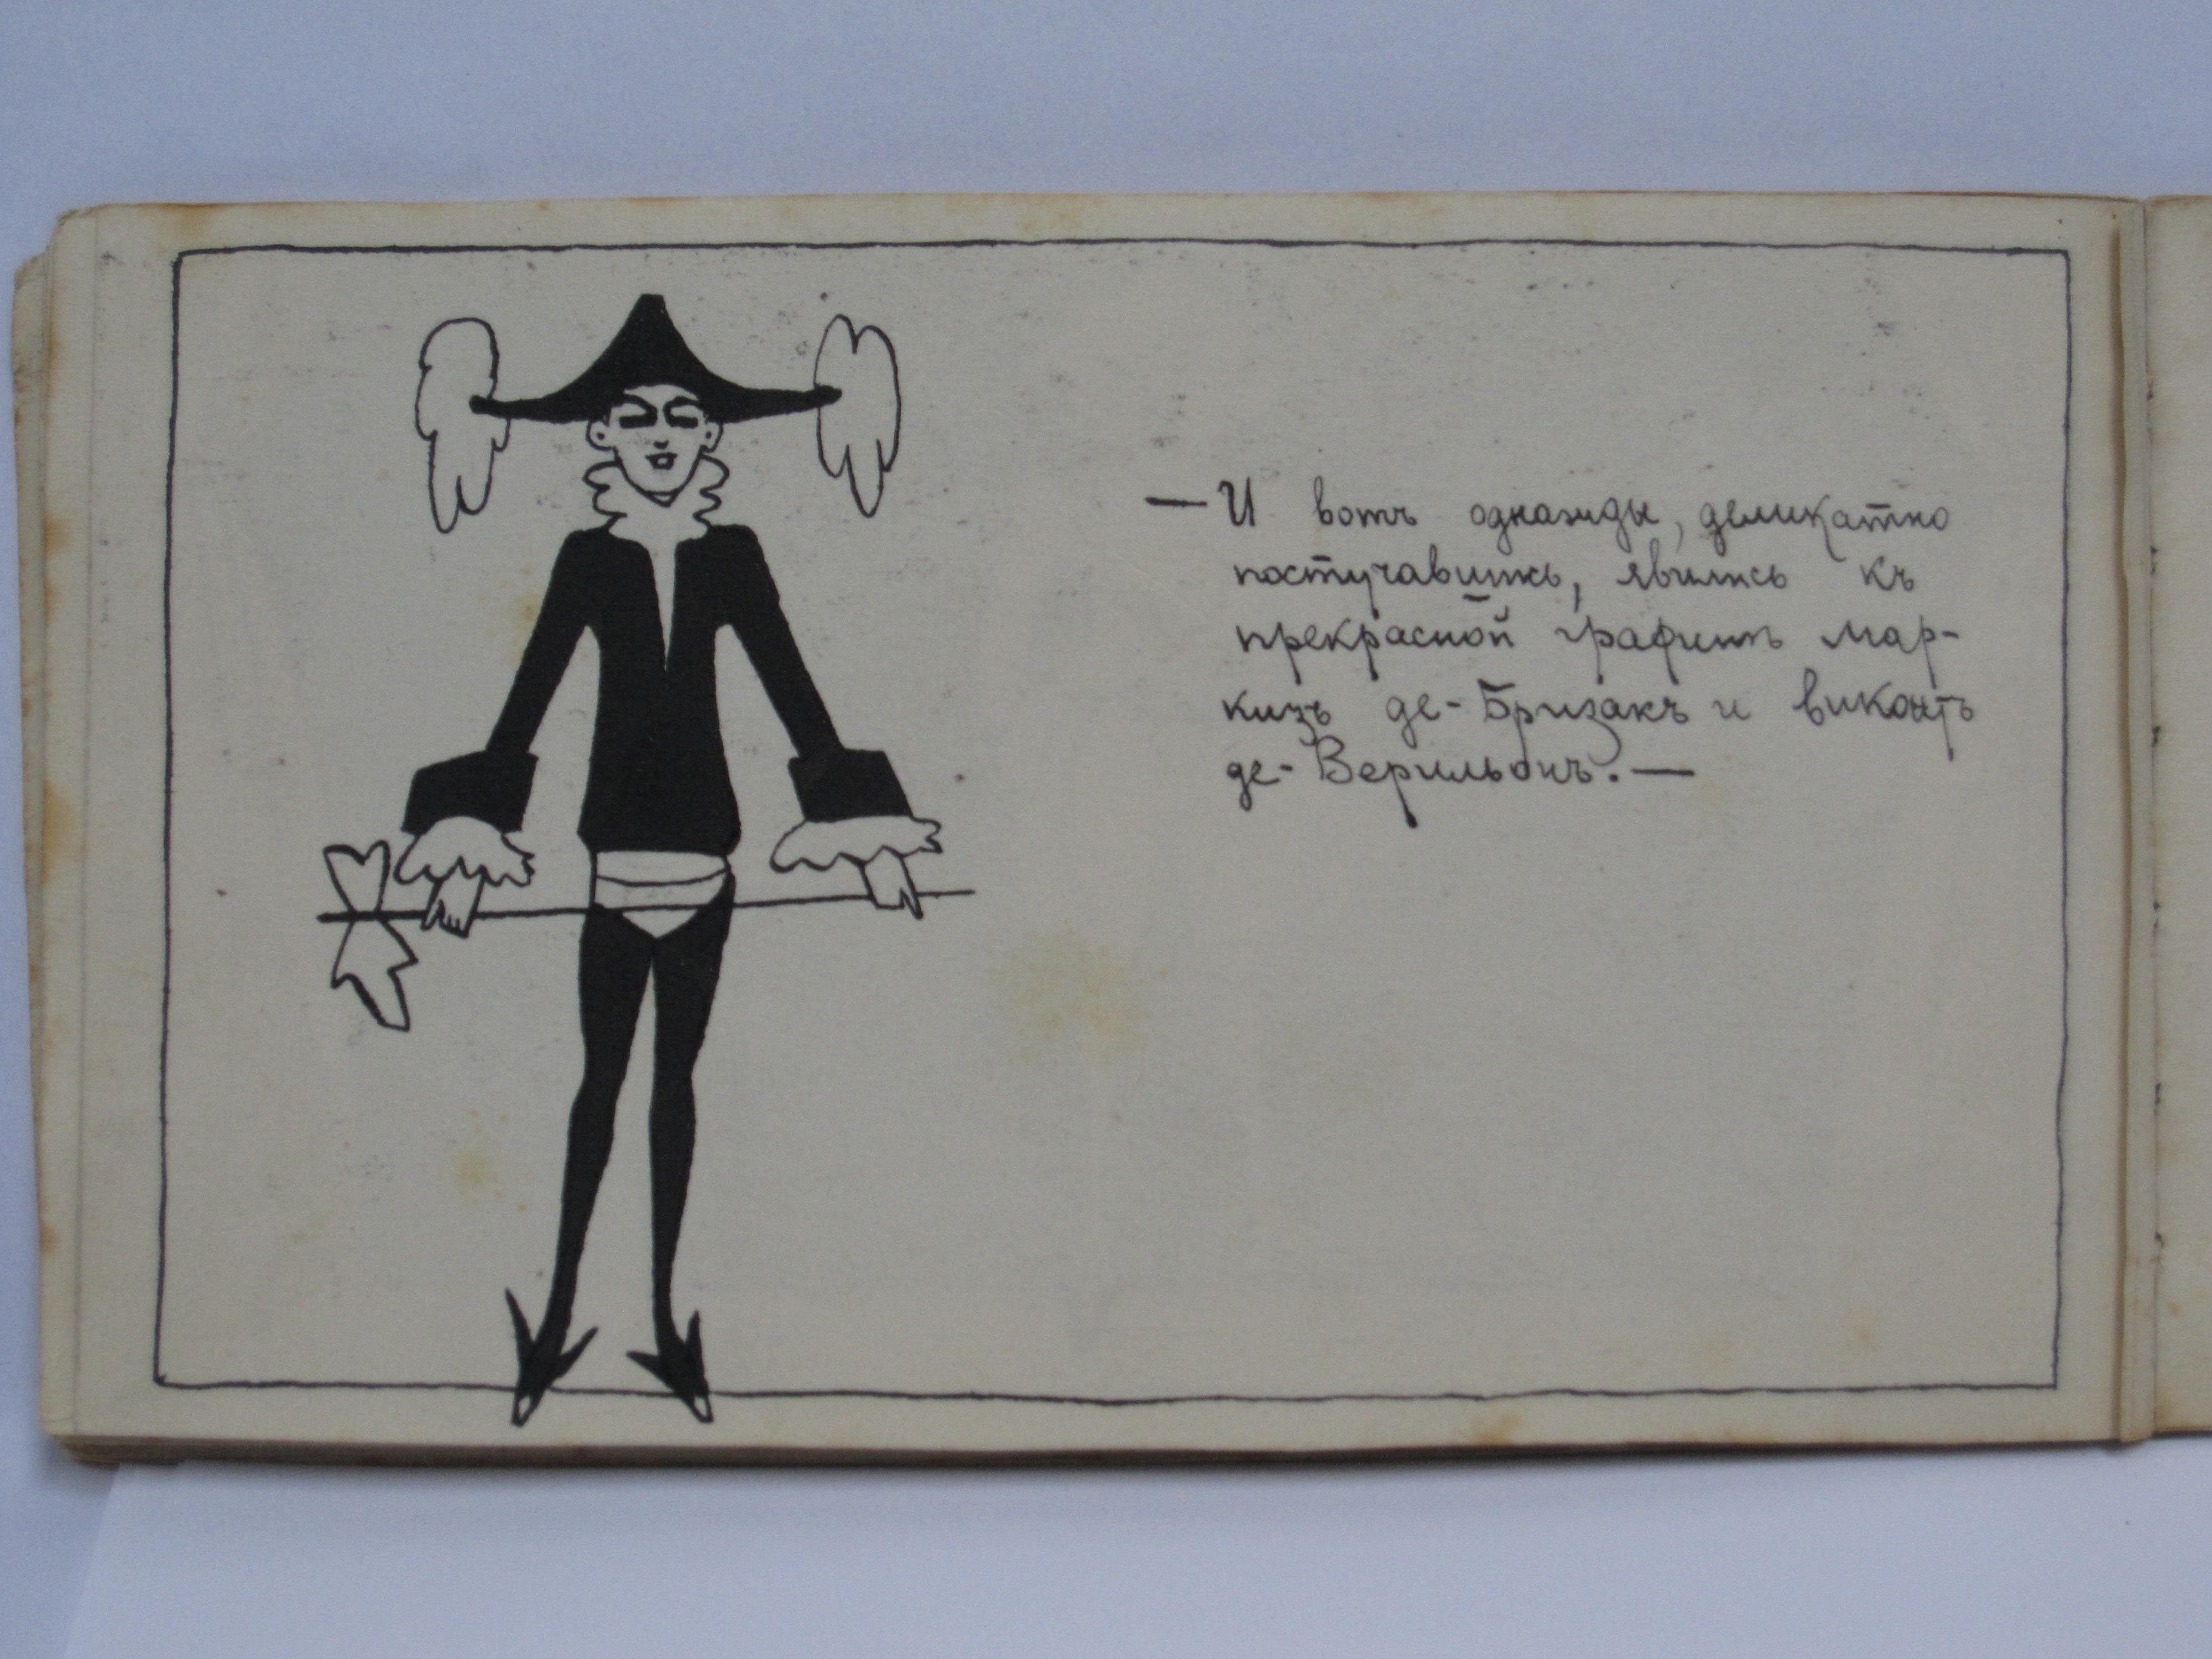 — И вотъ однажды, деликатно
постучавшись, явились къ
прекрасной графинѣ мар-
кизъ де-Бризакъ и виконтъ
де-Верильонъ. —